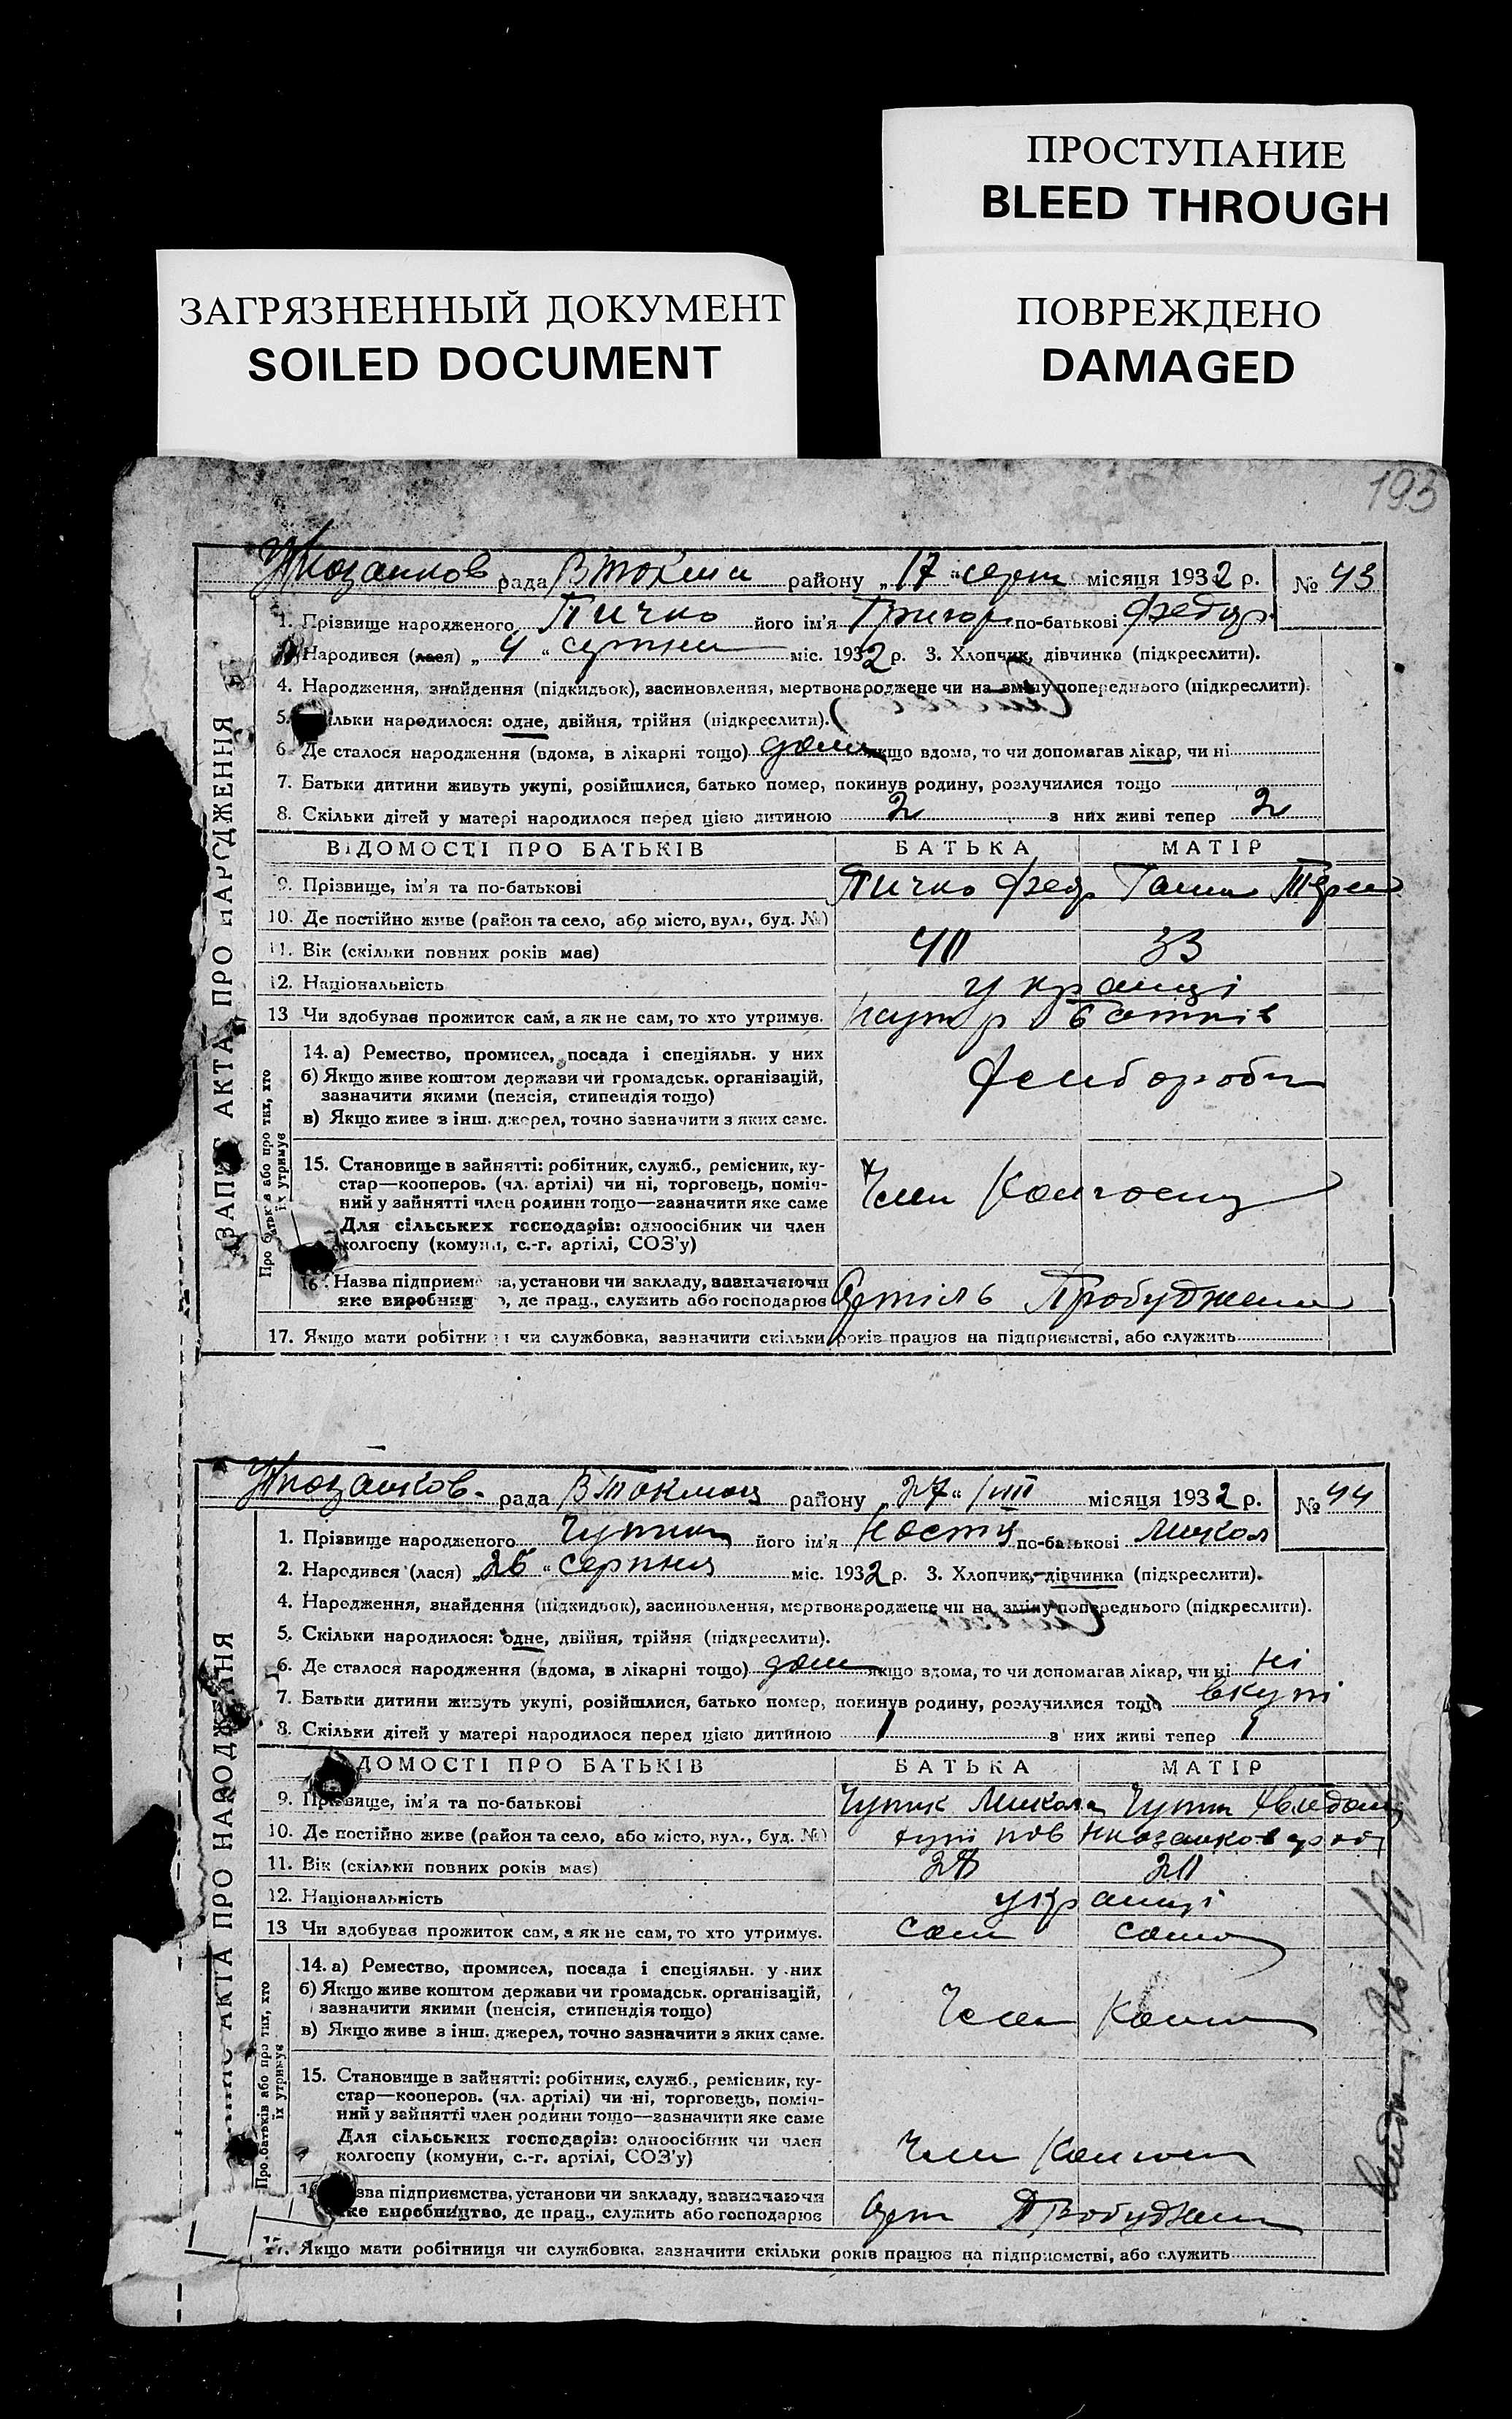 ПРОСТУПАНИЕ
BLEED THROUGH
ЗАГРЯЗНЕННЫЙ ДОКУМЕНТ
SOILED DOCUMENT
ПОВРЕЖДЕНО
DAMAGED
193
рада район у „17“ серп місяця 1932 р. № 43
1. Прізвище народженого Пичко його ім'я Григор по-батькові Федор
Народився (лася) „4“ серпня міс. 1932 р. 3. Хлопчик, дівчинка (підкреслити).
4. Народження, знайдення (підкидьок), засиновлення, мертвонароджене чи на зміну попереднього (підкреслити).
5. ільки народилося: одне, двійня, трійня (підкреслити).
6. Де сталося народження (вдома, в лікарні тощо) дома якщо вдома, то чи допомагав лікар, чи ні
7. Батьки дитини живуть укупі, розійшлися, батько помер, покинув родину, розлучилися тощо
8. Скільки дітей у матері народилося перед цією дитиною 2 з них живі тепер 2
ВІДОМОСТІ ПРО БАТЬКІВ БАТЬКА МАТІР
9. Прізвище, ім'я та по-батькові Пичко Федр Ганна
10. Де постійно живе (район та село, або місто, вул., буд. №)
11. Вік (скільки повних років має) 40 33
12. Національність українці
13 Чи здобував прожиток сам, а як не сам, то хто утримує. батьків
14. а) Ремество, промисел, посада і спеціяльн. у них
б) Якщо живе коштом держави чи громадськ. організацій,
зазначити якими (пенсія, стипендія тощо)
в) Якщо живе з інш. джерел, точно зазначити з яких саме.
15. Становище в зайнятті: робітник, служб., ремісник, ку-
стар—кооперов. (чл. артілі) чи ні, торговець, поміч-
ний у зайнятті член родини тощо—зазначити яке саме
Член Колгоспу
Для сільських господарів: одноосібник чи член
колгоспу (комуни, с.-г. артілі, СОЗ'у)
16. Назва підприєм а, установи чи закладу, зазначаючи
яке виробниц о, де прац., служить або господарює Артіль Пробуджен
17. Якщо мати робітни чи службовка, зазначити скільки років працює на підприємстві, або служить
ЗАПИС АКТА ПРО НАРОДЖЕННЯ
Про батьків або про тих, хто
їх утримує
рада район у „27“ VIII місяця 1932 р. № 44
1. Прізвище народженого його ім'я по-батькові Микол
2. Народився (лася) „26“ серпня міс. 1932 р. 3. Хлопчик, дівчинка (підкреслити).
4. Народження, знайдення (підкидьок), засиновлення, мертвонароджене чи на зміну попереднього (підкреслити).
5. Скільки народилося: одне, двійня, трійня (підкреслити).
6. Де сталося народження (вдома, в лікарні тощо) дома якщо вдома, то чи допомагав лікар, чи ні ні
7. Батьки дитини живуть укупі, розійшлися, батько помер, покинув родину, розлучилися тощо вкупі
8. Скільки дітей у матері народилося перед цією дитиною 1 з них живі тепер 1
ДОМОСТІ ПРО БАТЬКІВ БАТЬКА МАТІР
9. Прізвище, ім'я та по-батькові Микола
10. Де постійно живе (район та село, або місто, вул., буд. №)
11. Вік (скільки повних років має) 28 20
12. Національність українці
13 Чи здобував прожиток сам, а як не сам, то хто утримує. сам сама
14. а) Ремество, промисел, посада і спеціяльн. у них
б) Якщо живе коштом держави чи громадськ. організацій,
зазначити якими (пенсія, стипендія тощо)
в) Якщо живе з інш. джерел, точно зазначити з яких саме.
Член
15. Становище в зайнятті: робітник, служб., ремісник, ку-
стар—кооперов. (чл. артілі) чи ні, торговець, поміч-
ний у зайнятті член родини тощо—зазначити яке саме
Для сільських господарів: одноосібник чи член
колгоспу (комуни, с.-г. артілі, СОЗ'у) Член
зва підприємства, установи чи закладу, зазначаючи
яке виробництво, де прац., служить або господарює Арт Пробуджен
17. Якщо мати робітниця чи службовка, зазначити скільки років працює на підприємстві, або служить
АКТА ПРО НАРОДЖЕННЯ
Про батьків або про тих, хто
їх утримує